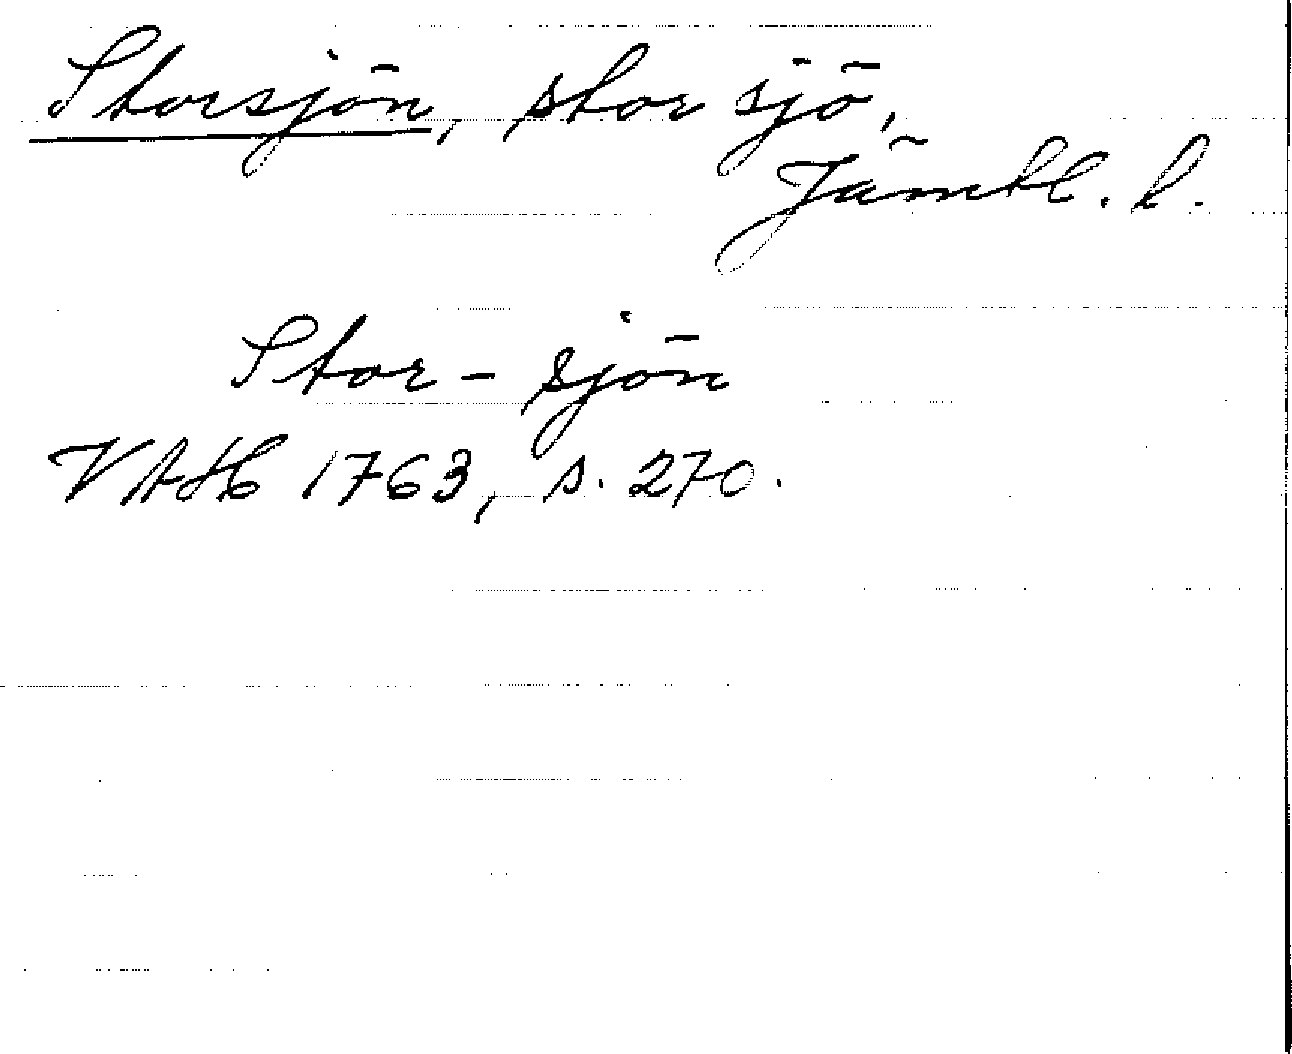 Storsjön, stor sjö,
Jämtl. l.
Stor- sjön
VAH 1763, s. 270.